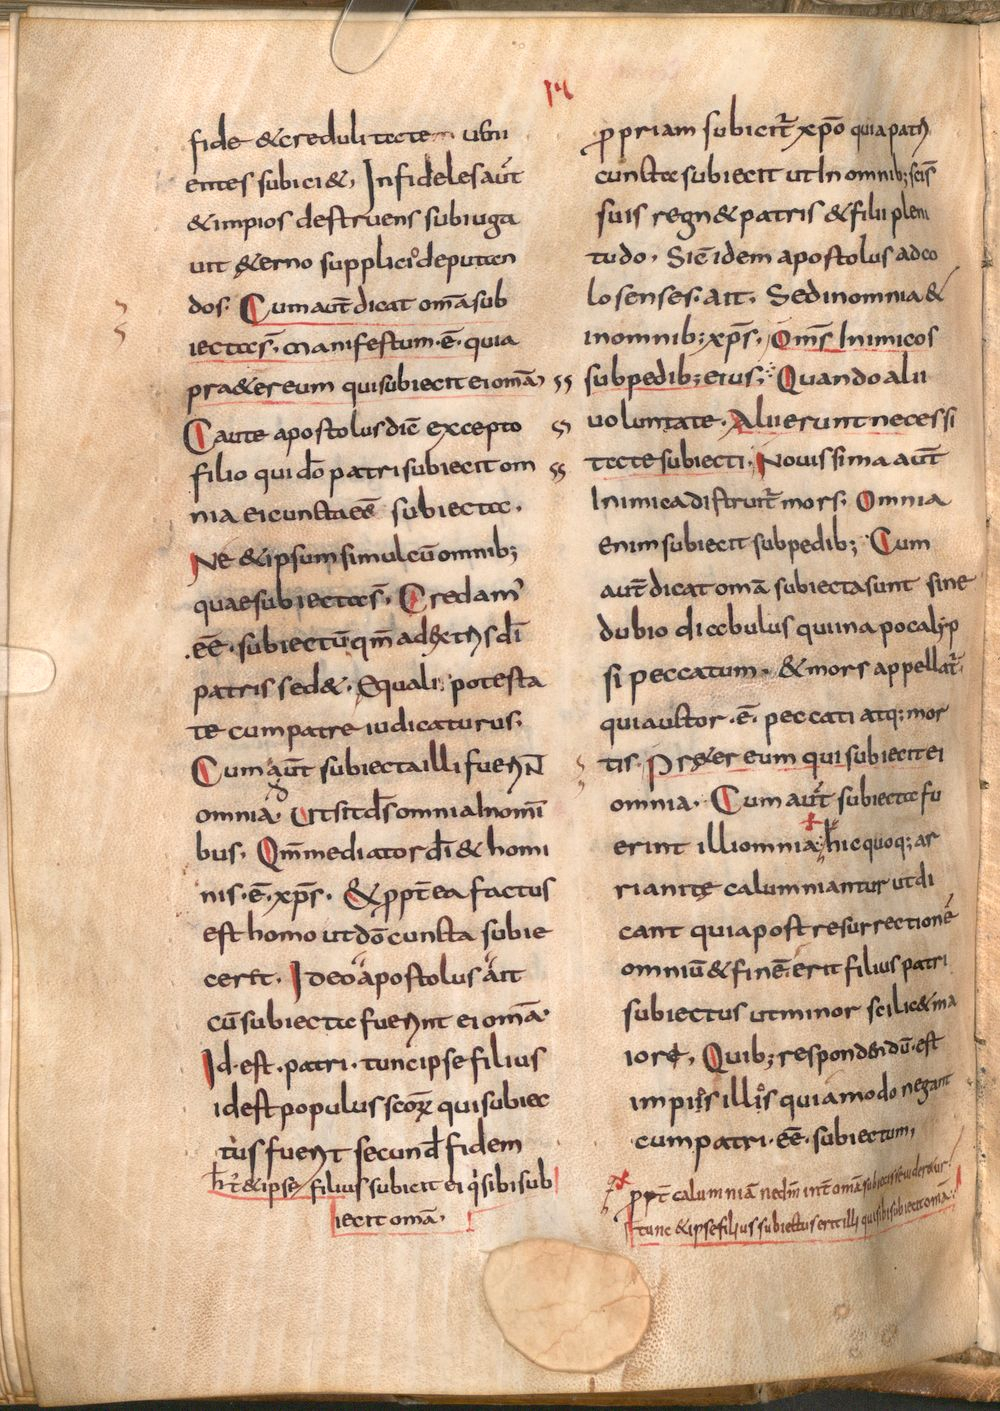 14
fide & creduli tate ubii
entes subici&, Infideles aūt
& impios destruens subiuga
uit &erno supplicio deputan
dos. Cum aut̄ dicat om̄a sub
iecta s̄. manifestum .ē. quia
pra&er eum qui subiecit ei om̄a
Caute apostolus diē excepto
filio qui dō patri subiecit om
nia ei cuncta eē subiecta.
Ne & ipsum simul cū omnib;
quae subiecta s̄. Credam'
.eē. subiectū qm̄ ad dextris dī
patris sed&. Equali potesta
te cum patre iudicaturus;
Cum aūt subiecta illi fuerN̄
omnia. Ut sit ds̄ omnia In om̄i
bus. Qm̄ mediator dī & homi
nis .ē. xp̄s. & ppt̄ea factus
est homo ut dō cuncta subie
cerit. Ideo apostolus ait
cū subiecta fuerint ei om̄a.
Id est. patri. tunc ipse filius
id est populus scōꝝ qui subiec
tus fuerit secund̄ fidem
& ipse filius subicit ei q sibi sub
iecit om̄a.
ꝓpriam subicit̄ xp̄o quia patri
cuncta subiecit ut In omnib; scīs
suis regn& patris & filii pleni
tudo. Siē idem apostolus ad co
losenses. ait. Sed in omnia &
in omnib; xp̄s. Om̄s Inimicos
sub pedib; eius; Quando alii
uoluntate. Alii erunt necessi
tate subiecti. Nouissima aūt
Inimica distruit̄ mors. Omnia
enim subiecit sub pedib; Cum
aut̄ dicat om̄a subiecta sunt sine
dubio diabulus qui in apocalyp
si peccatum. & mors appellat̄.
qui auctor .ē. peccati atq; mor
tis. Pr&er eum qui subiecit ei
omnia. Cum aūt subiecta fu
erint illi omnia; hic quoq; ar
riani te calumniantur ut di
cant quia post resurrectionē
omniū & finē. erit filius patri
subiectus ut minor scilic& ma
iore, Quib; respondendū. est
impiis illis quia modo negant
eum patri .eē. subiectum,
ppt̄ calumniā om̄a subiecta
tunc & ipse filius subiectus erit illi qui sibi subiecit om̄a.